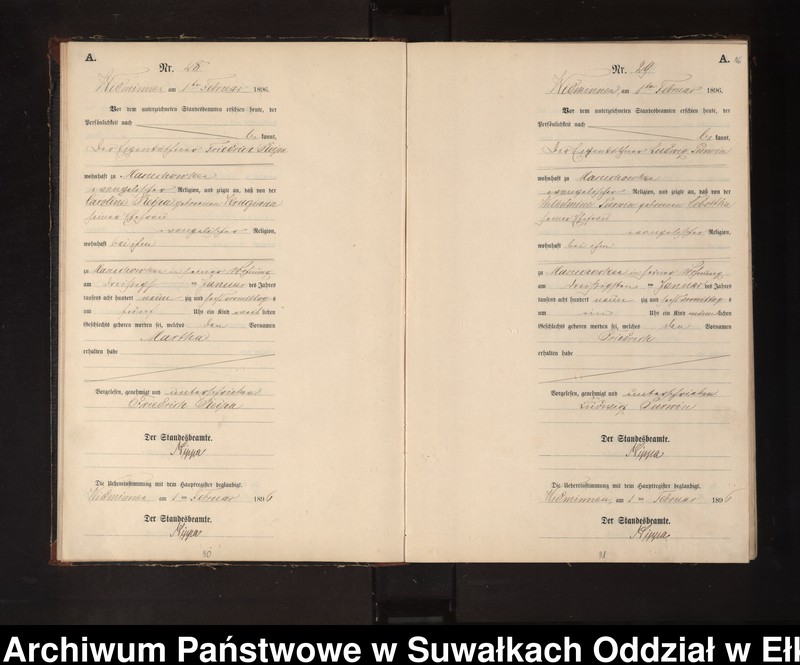 A.
Nr. 28
Widminnen am 1ten Februar 1896.
Vor dem unterzeichneten Standesbeamten erschien heute, der
Persönlichkeit nach
be kannt,
der Eigenkäthner Friedrich
wohnhaft zu
evangelischer Religion, und zeigte an, daß von der
Caroline geborenen
seiner Ehefrau
evangelischer Religion,
wohnhaft bei ihm
zu in seiner Wohnung
am Januar des Jahres
tausend acht hundert neun zig und sechs Vormittags
um fünf Uhr ein Kind weib lichen
Geschlechts geboren worden sei, welches den Vornamen
Martha
erhalten habe
Vorgelesen, genehmigt und unterschrieben
Friedrich
Der Standesbeamte.
Nippa
Die Uebereinstimmung mit dem Hauptregister beglaubigt.
Widminnen am 1ten Februar 1896
Der Standesbeamte.
Nippa
A.
Nr. 29
Widminnen, am 1ten Februar 1896.
Vor dem unterzeichneten Standesbeamten erschien heute, der
Persönlichkeit nach
be kannt,
der Eigenkäthner Ludwig
wohnhaft zu
evangelischer Religion, und zeigte an, daß von der
Wilhelmine geborenen Sobottka
seiner Ehefrau
evangelischer Religion,
wohnhaft bei ihm
zu in seiner Wohnung
am dreißigsten Januar des Jahres
tausend acht hundert neun zig und sechs Vormittags
um ein Uhr ein Kind männ lichen
Geschlechts geboren worden sei, welches den Vornamen
Friedrich
erhalten habe
Vorgelesen, genehmigt und unterschrieben
Ludwig
Der Standesbeamte.
Nippa
Die Uebereinstimmung mit dem Hauptregister beglaubigt.
Widminnen, am 1ten Februar 1896
Der Standesbeamte.
Nippa
Archiwum Państwowe w Suwałkach Oddział w Eł